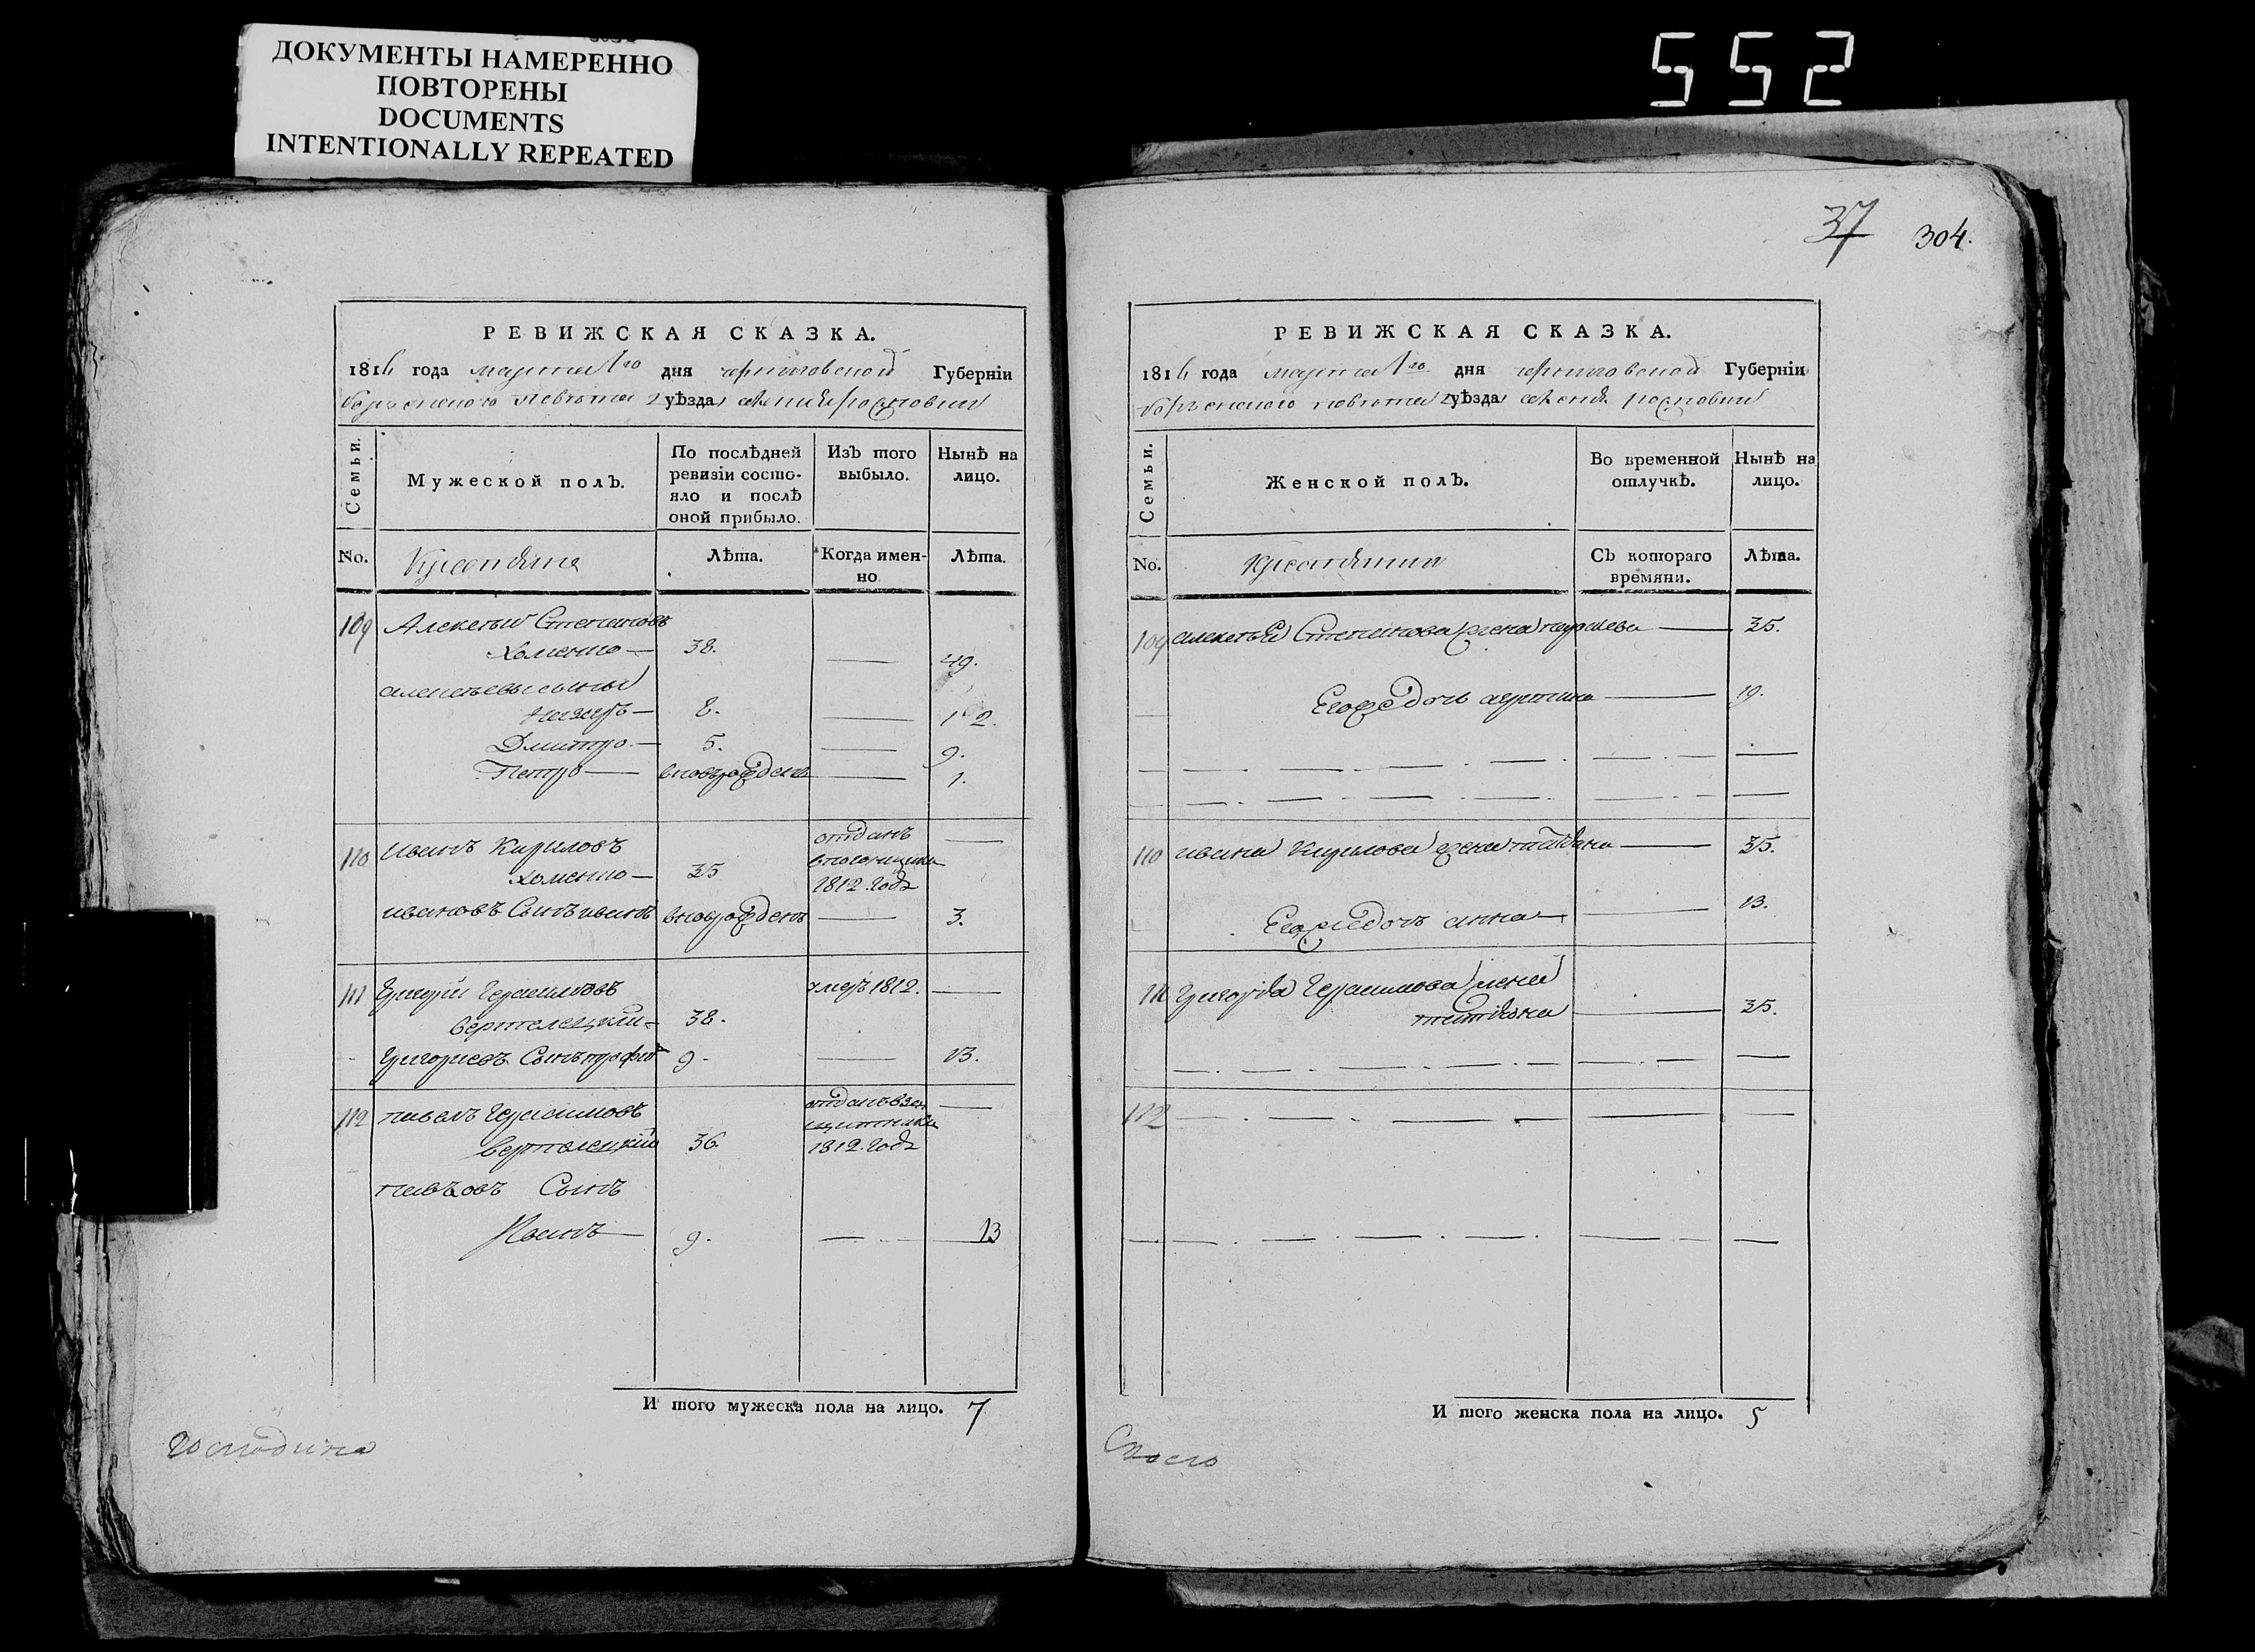 ДОКУМЕНТЫ НАМЕРЕННО
ПОВТОРЕНЫ
DOCUMENTS
INTENTIONALLY REPEATED
552
РЕВИЖСКАЯ СКАЗКА.
1816 года марта 1го дня черниговской Губернїи
повета уѣзда
Семьи.
Мужеской полъ.
По послѣдней ревизїи состояло и послѣ оной прибыло.
Изъ того выбыло.
Нынѣ на лицо.
No.
Лѣта.
Когда именно
Лѣта.
109 Алексѣй Степановъ
Хоменко — 38. — 49.
алексѣевы сыны
Назаръ — 8. — 12.
Дмитро — 5. — 9.
Петро — вновьрожденъ — 1.
110 Иванъ Кириловъ
хоменко — 35
отданъ
1812 годе
ивановъ Сынъ иванъ вноврожденъ — 3.
111 Григорій Герасимовъ умеръ 1812. —
вертелецкій — 38.
Григориевъ Сынъ трофимъ 9 — 13.
112 павелъ Герасимовъ
вертелецкій 36
отданъ в
1812 годе
павловъ Сынъ
Иванъ — 9. — 13
И того мужеска пола на лицо. 7
господина
37 304.
РЕВИЖСКАЯ СКАЗКА.
1816 года марта 1го дня черниговской Губернїи
повета уѣзда
Семьи.
Женской полъ.
Во временной отлучкѣ.
Нынѣ на лицо.
No.
Съ котораго времяни.
Лѣта.
109 алексѣя Степанова жена — 35.
Егожъ дочь — 19.
110 ивана Кирилова жена татияна — 35.
Егожъ дочь анна — 13.
111 Григория Герасимова жена
татияна — 35.
112
И того женска пола на лицо. 5